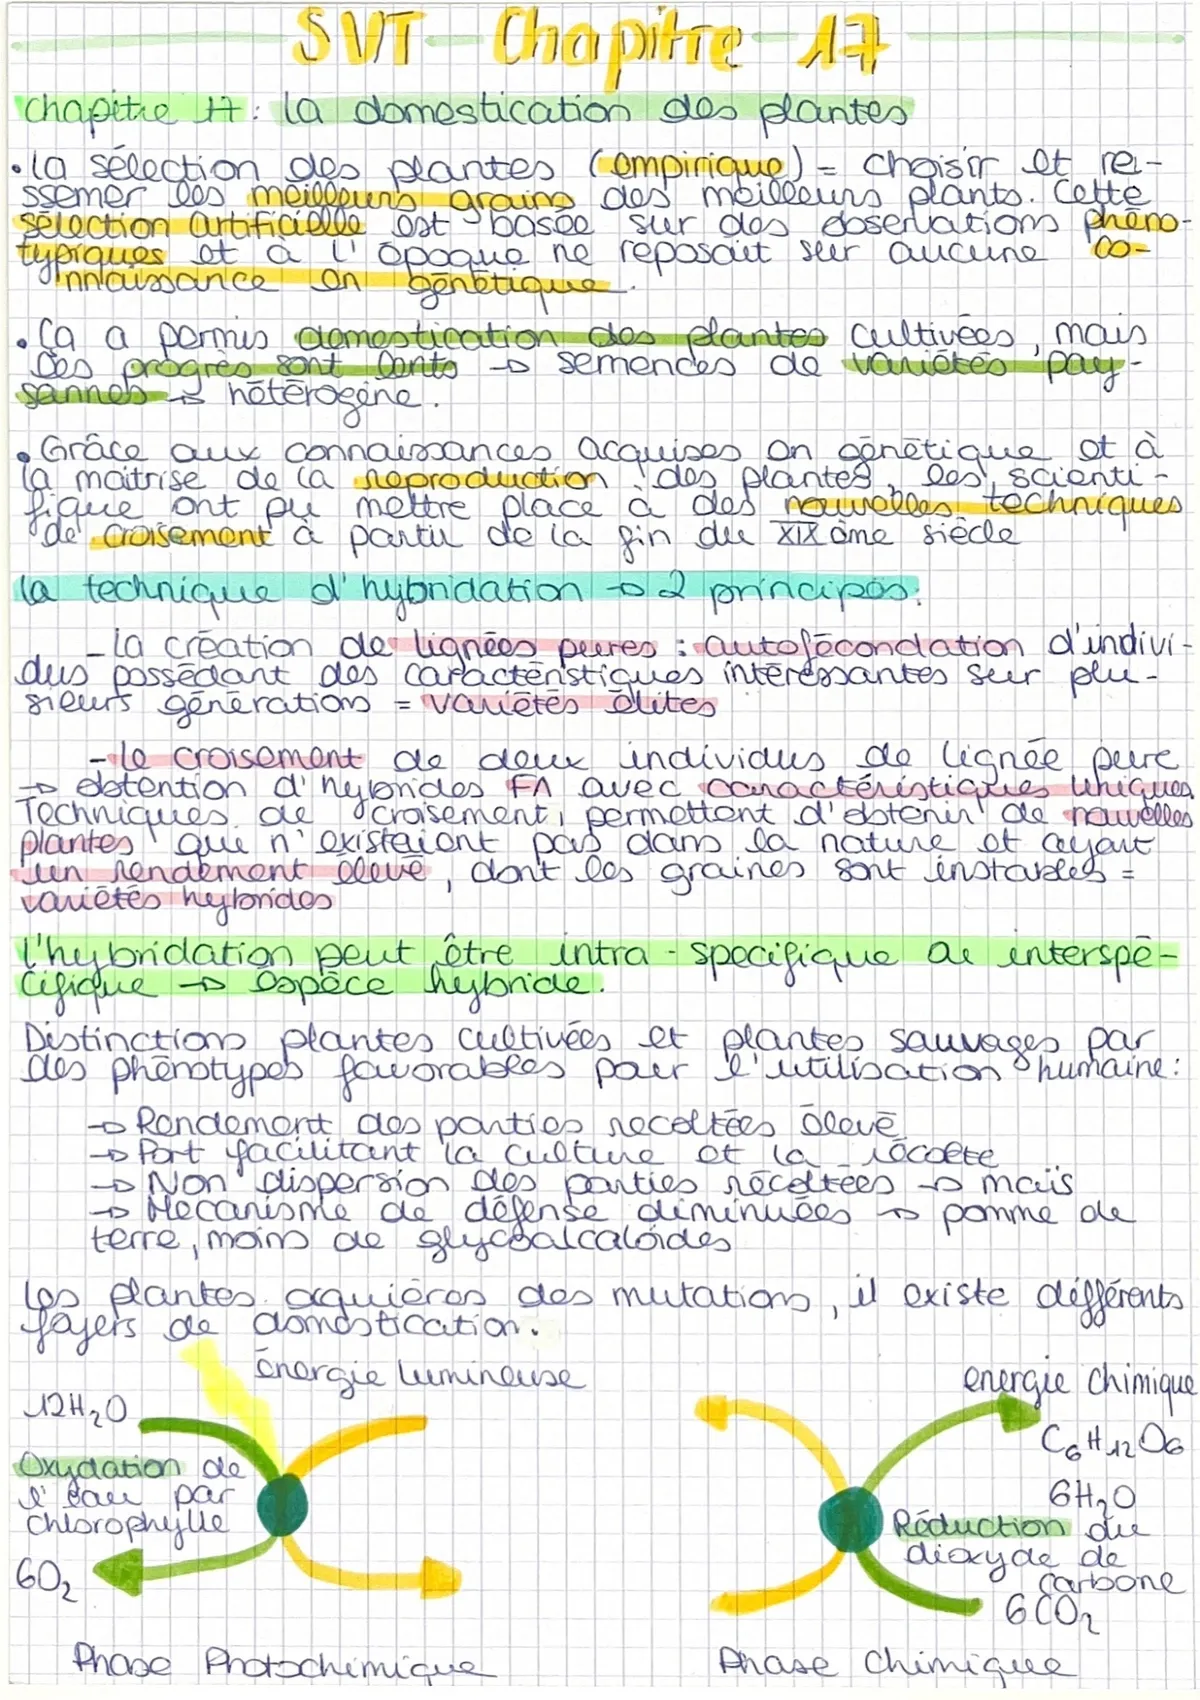 SVT Chapitre 17
chapitre 17 : la domestication des plantes
• la sélection des plantes (empirique) = choisir et re-
ssemer les meilleurs grains des meilleurs plants. Cette
sélection artificielle est basée sur des observations phéno-
typiques et à l'époque ne reposait sur aucune co-
nnaissance en génétique.
• Ça a permis domestication des plantes cultivées, mais
les progrès sont lents → semences de variétés pay-
sannes → hétérogène.
• Grâce aux connaissances acquises en génétique et à
la maitrise de la reproduction des plantes, les scienti-
fique ont pu mettre place à des nouvelles techniques
de croisement à partir de la fin du XIXème siècle
la technique d'hybridation → 2 principes:
- la création de lignées pures : autofécondation d'indivi-
dus possédant des caractéristiques intéressantes sur plu-
sieurs générations = variétés élites
- le croisement de deux individus de lignée pure
→ obtention d'hybrides F1 avec caractéristiques uniques
Techniques de croisement, permettent d'obtenir de nouvelles
plantes que n'existaient pas dans la nature et ayant
un rendement élevé, dont les graines sont instables =
variétés hybrides
L'hybridation peut être intra-specifique ou interspé-
cifique → espèce hybride.
Distinctions plantes cultivées et plantes sauvages par
des phénotypes favorables pour l'utilisation humaine:
→ Rendement des parties recoltées élevé
→ Port facilitant la culture et la récolte
→ Non dispersion des parties récoltées → maïs
→ Mécanisme de défense diminuées → pomme de
terre, moins de glycoalcaloïdes
Les plantes aquières des mutations, il existe différents
foyers de domestication.
énergie lumineuse
energie chimique
12H₂O
C₆H₁₂O₆
Oxydation de
l'eau par
chlorophylle
6H₂O
Réduction du
dioxyde de
carbone
6O₂
6CO₂
Phase Photochimique
Phase chimique